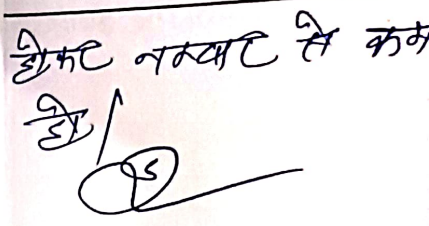 होकर नम्बार से कम
हो।